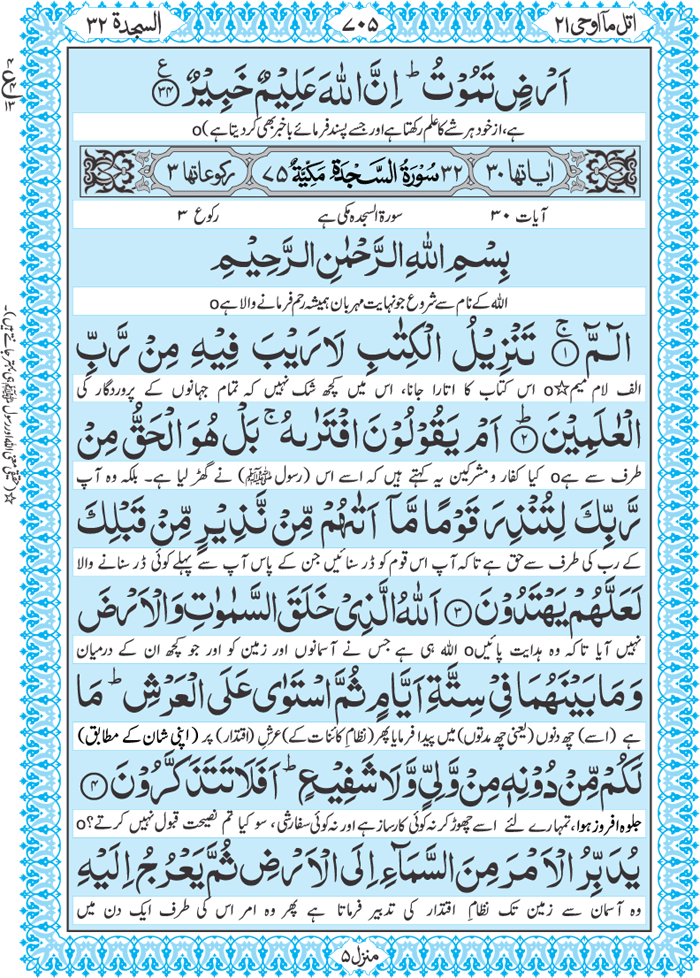 اتل مآ اوحی ۲۱
۷۰۵
السجدة ۳۲
اَرْضٍ تَمُوْتُ ؕ اِنَّ اللّٰهَ عَلِیْمٌ خَبِیْرٌ ﴿۳۴﴾ ع
ہے، از خود ہر شے کا علم رکھتا ہے اور جسے پسند فرمائے باخبر بھی کر دیتا ہے)o
اٰیاتها ۳۰
۳۲ سُوْرَةُ السَّجْدَةِ مَكِّیَّةٌ ۷۵
رکوعاتها ۳
آیات ۳۰
سورۃ السجدہ مکی ہے
رکوع ۳
بِسْمِ اللّٰهِ الرَّحْمٰنِ الرَّحِیْمِ
اللہ کے نام سے شروع جو نہایت مہربان ہمیشہ رحم فرمانے والا ہےo
الٓمّٓ ﴿۱﴾ ۚ تَنْزِیْلُ الْكِتٰبِ لَا رَیْبَ فِیْهِ مِنْ رَّبِّ
الف لام میم☆o اس کتاب کا اتارا جانا، اس میں کچھ شک نہیں کہ تمام جہانوں کے پروردگار کی
الْعٰلَمِیْنَ ﴿۲﴾ ؕ اَمْ یَقُوْلُوْنَ افْتَرٰىهُ ۚ بَلْ هُوَ الْحَقُّ مِنْ
طرف سے ہےo کیا کفار و مشرکین یہ کہتے ہیں کہ اسے اس (رسول ﷺ) نے گھڑ لیا ہے۔ بلکہ وہ آپ
رَّبِّكَ لِتُنْذِرَ قَوْمًا مَّاۤ اَتٰىهُمْ مِّنْ نَّذِیْرٍ مِّنْ قَبْلِكَ
کے رب کی طرف سے حق ہے تاکہ آپ اس قوم کو ڈر سنائیں جن کے پاس آپ سے پہلے کوئی ڈر سنانے والا
لَعَلَّهُمْ یَهْتَدُوْنَ ﴿۳﴾ اَللّٰهُ الَّذِیْ خَلَقَ السَّمٰوٰتِ وَ الْاَرْضَ
نہیں آیا تاکہ وہ ہدایت پائیںo اللہ ہی ہے جس نے آسمانوں اور زمین کو اور جو کچھ ان کے درمیان
وَ مَا بَیْنَهُمَا فِیْ سِتَّةِ اَیَّامٍ ثُمَّ اسْتَوٰى عَلَى الْعَرْشِ ؕ مَا
ہے (اسے) چھ دنوں (یعنی چھ مدتوں) میں پیدا فرمایا پھر (نظامِ کائنات کے) عرشِ (اقتدار) پر (اپنی شان کے مطابق)
لَكُمْ مِّنْ دُوْنِهٖ مِنْ وَّلِیٍّ وَّ لَا شَفِیْعٍ ؕ اَفَلَا تَتَذَكَّرُوْنَ ﴿۴﴾
جلوہ افروز ہوا، تمہارے لئے اسے چھوڑ کر نہ کوئی کارساز ہے اور نہ کوئی سفارشی، سو کیا تم نصیحت قبول نہیں کرتے؟o
یُدَبِّرُ الْاَمْرَ مِنَ السَّمَآءِ اِلَى الْاَرْضِ ثُمَّ یَعْرُجُ اِلَیْهِ
وہ آسمان سے زمین تک نظامِ اقتدار کی تدبیر فرماتا ہے پھر وہ امر اس کی طرف ایک دن میں
☆(حقیقی معنی اللہ اور رسول ﷺ ہی بہتر جانتے ہیں)۔
منزل ۵